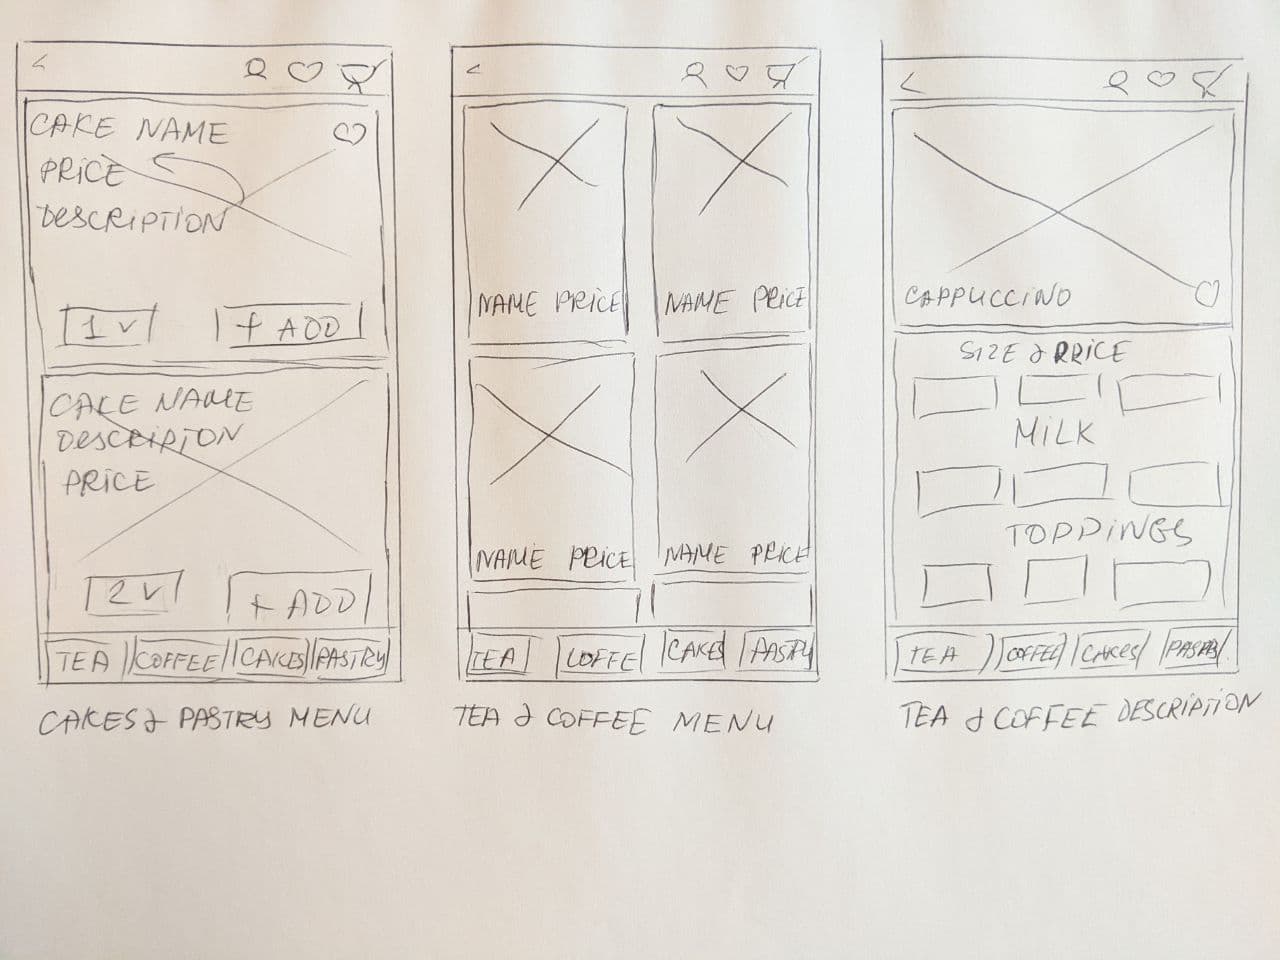 CAKE NAME
PRICE
DESCRIPTION
1 v
+ ADD
CAKE NAME
DESCRIPTON
PRICE
2 v
+ ADD
TEA COFFEE CAKES PASTRY
CAKES & PASTRY MENU
NAME PRICE NAME PRICE
NAME PRICE NAME PRICE
TEA COFFE CAKES PASTRY
TEA & COFFEE MENU
CAPPUCCINO
SIZE & PRICE
MILK
TOPPINGS
TEA COFFEE CAKES
TEA & COFFEE DESCRIPTION